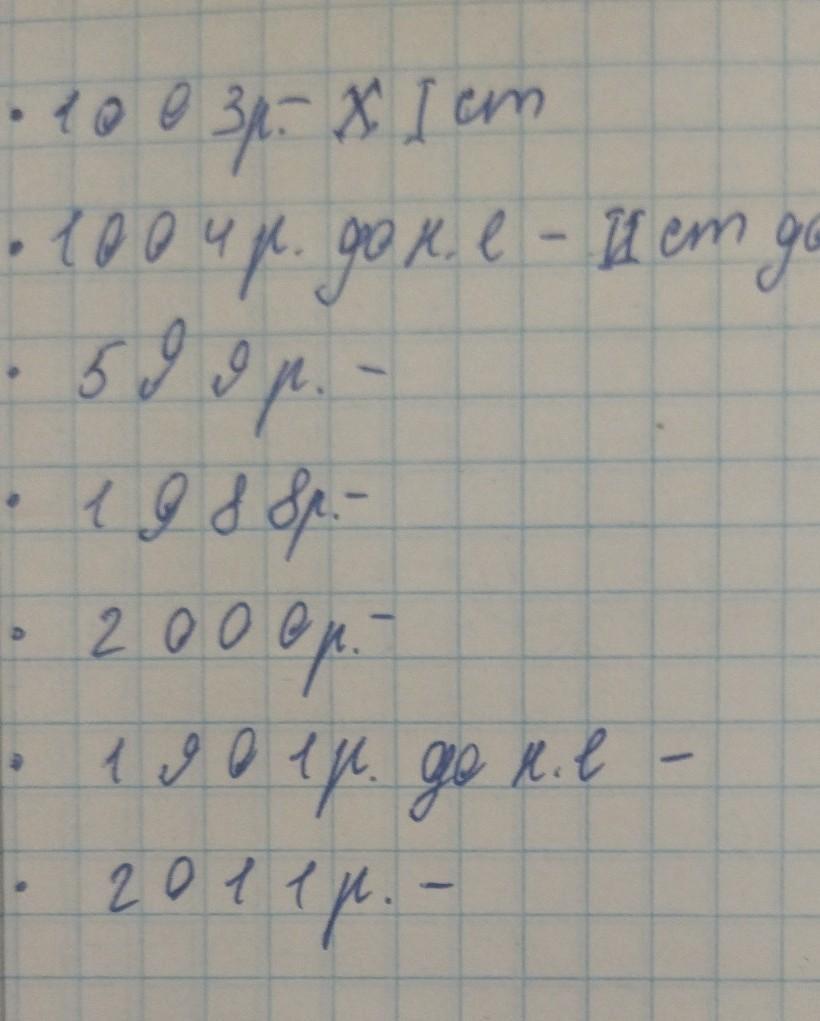 • 1003р.- XI ст
• 1004р. до н.е - II ст до
• 599р. -
• 1988р.-
• 2000р.-
• 1901р. до н.е -
• 2011р. -